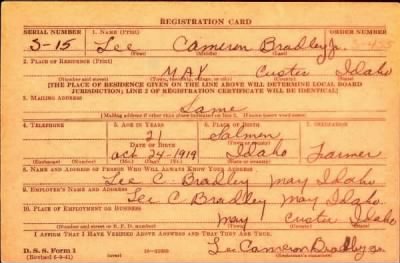 REGISTRATION CARD
SERIAL NUMBER 1. NAME (Print) ORDER NUMBER
S-15 Lee Cameron Bradley Jr.
(First) (Middle) (Last)
2. PLACE OF RESIDENCE (Print)
MAY Custer Idaho
(Number and street) (Town, township, village, or city) (County) (State)
[THE PLACE OF RESIDENCE GIVEN ON THE LINE ABOVE WILL DETERMINE LOCAL BOARD
JURISDICTION; LINE 2 OF REGISTRATION CERTIFICATE WILL BE IDENTICAL]
3. MAILING ADDRESS
Same
[Mailing address if other than place indicated on line 2. If same insert word same]
4. TELEPHONE 5. AGE IN YEARS 6. PLACE OF BIRTH
21 Salmon
DATE OF BIRTH (Town or county)
Oct 24-1919 Idaho Farmer
(Exchange) (Number) (Mo.) (Day) (Yr.) (State or country)
8. NAME AND ADDRESS OF PERSON WHO WILL ALWAYS KNOW YOUR ADDRESS
Lee C. Bradley May Idaho
9. EMPLOYER'S NAME AND ADDRESS
Lee C. Bradley May Idaho
10. PLACE OF EMPLOYMENT OR BUSINESS
May Custer Idaho
(Number and street or R. F. D. number) (Town) (County) (State)
I AFFIRM THAT I HAVE VERIFIED ABOVE ANSWERS AND THAT THEY ARE TRUE.
D. S. S. Form 1 Lee Cameron Bradley Jr.
(Revised 6-9-41)